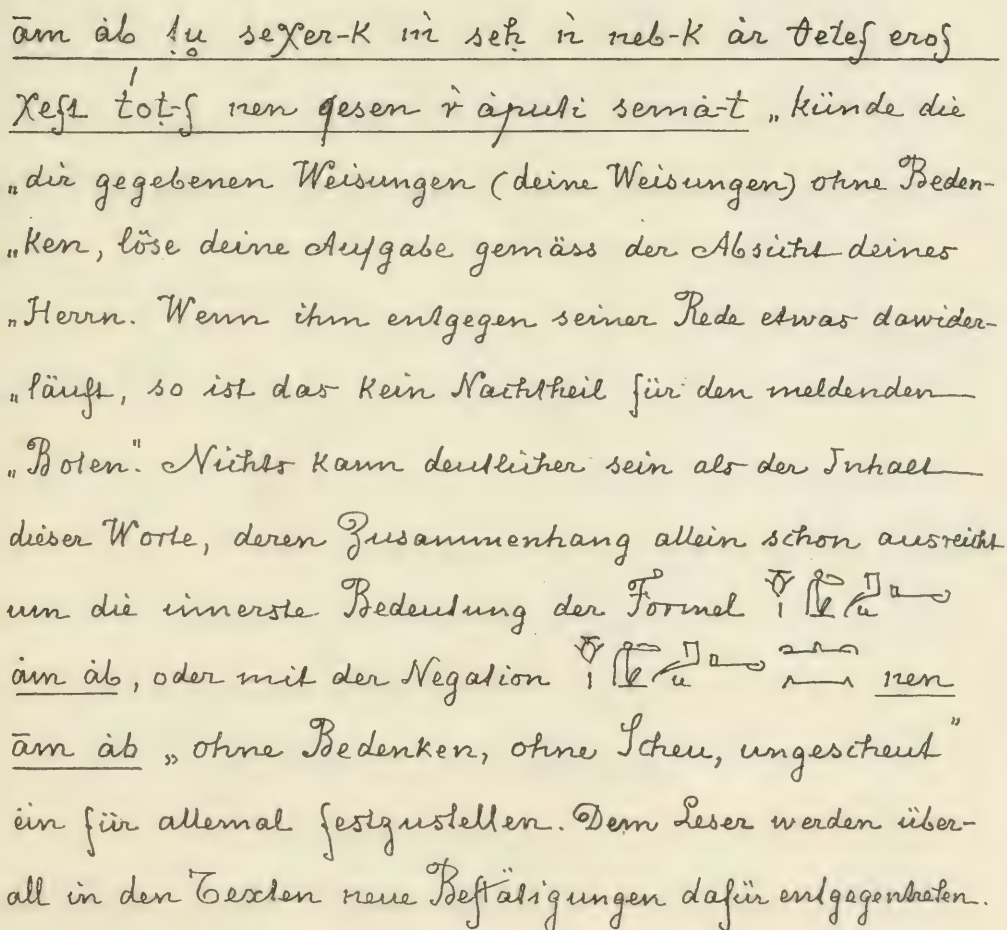 ām àb ṭu seχer-k m̀ seḥ ǹ neb-k àr tetef erof
χeft ṭot-f nen qesen r̀ àputi semà-t „künde die
„dir gegebenen Weisungen (deine Weisungen) ohne Beden-
„ken, löse deine Aufgabe gemäss der Absicht deines
„Herrn. Wenn ihm entgegen seiner Rede etwas dawider-
„läuft, so ist das kein Nachtheil für den meldenden
„Boten". Nichts kann deutlicher sein als der Inhalt
dieser Worte, deren Zusammenhang allein schon ausreicht
um die innerste Bedeutung der Formel
ām àb, oder mit der Negation nen
ām àb „ohne Bedenken, ohne Scheu, ungescheut"
ein für allemal festzustellen. Dem Leser werden über-
all in den Texten neue Bestätigungen dafür entgegentreten.